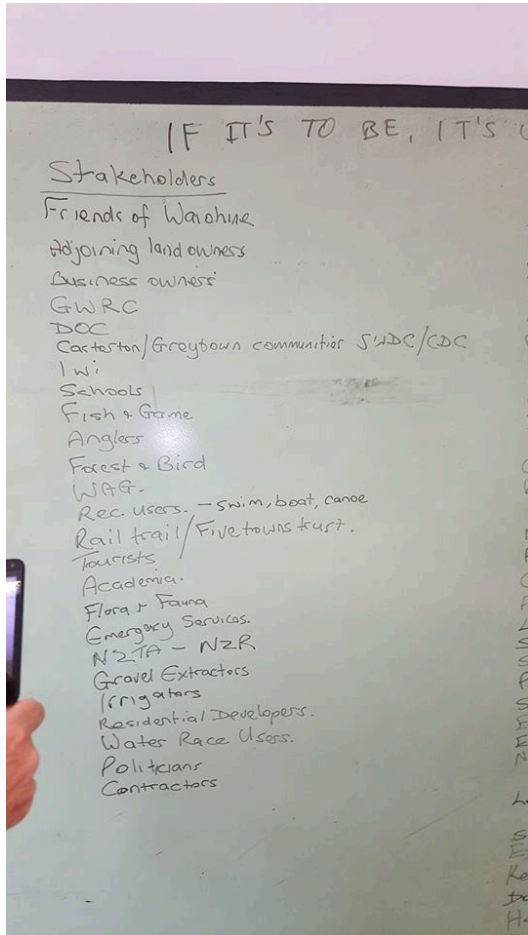 IF IT'S TO BE, IT'S
Stakeholders
Friends of Waiohine
Adjoining land owners
Business owners
GWRC
DOC
Carterton/Greytown communities SWDC/CDC
Iwi
Schools
Fish & Game
Anglers
Forest & Bird
WAG.
Rec. Users. - swim, boat, canoe
Rail trail/Five towns trust.
Tourists
Academia.
Flora & Fauna
Emergency Services.
NZTA - NZR
Gravel Extractors
Irrigators
Residential Developers.
Water Race Users.
Politicians
Contractors